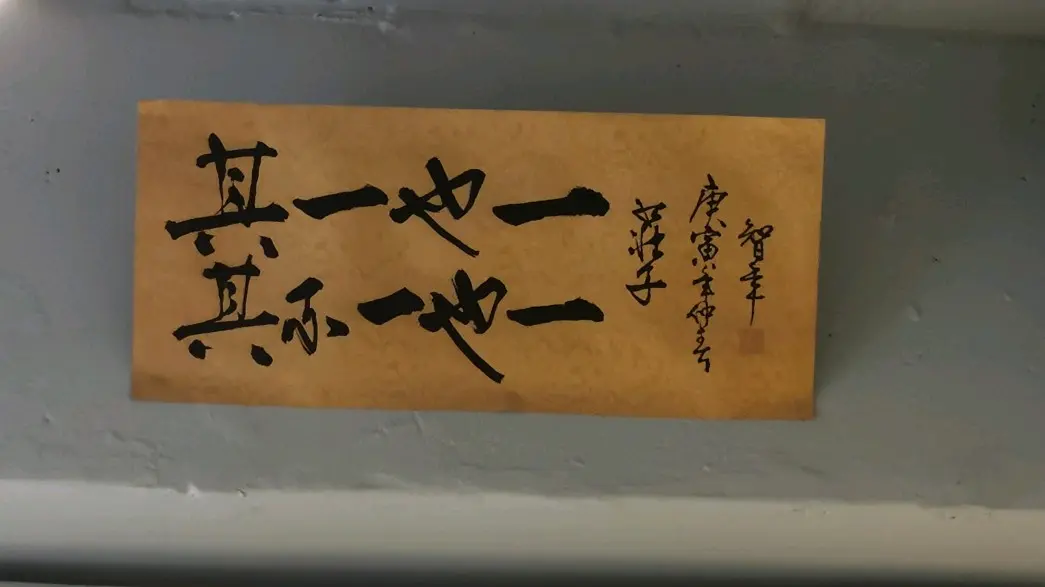 其一也一
其不一也一
莊子
庚寅年仲春
智年